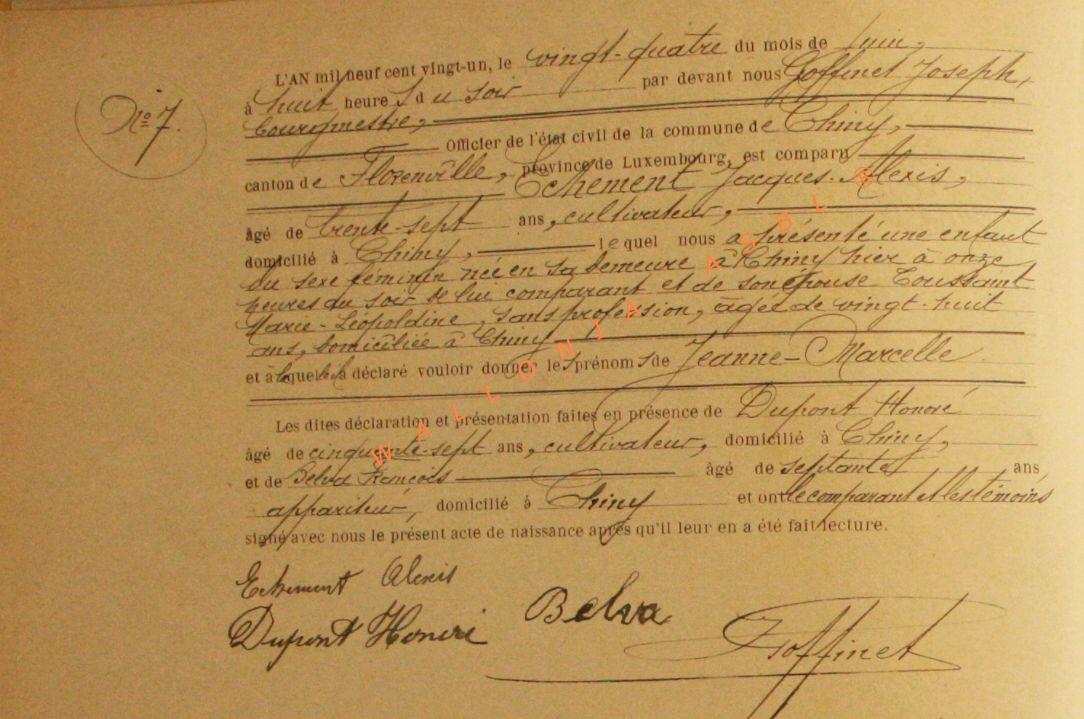 L'AN mil neuf cent vingt-un, le vingt-quatre du mois de juin,
à huit heure s du soir par devant nous Goffinet Joseph,
Bourgmestre,
Officier de l'état civil de la commune de Chiny,
canton de Florenville, province de Luxembourg, est comparu
Echement Jacques-Alexis,
âgé de trente-sept ans, cultivateur,
domicilié à Chiny, lequel nous a présenté une enfant
du sexe féminin née en sa demeure à Chiny hier à onze
heures du soir de lui comparant et de son épouse Toussaint
Marie-Léopoldine, sans profession, âgée de vingt-huit
ans, domiciliée à Chiny
et à laquelle il a déclaré vouloir donner les prénoms de Jeanne-Marcelle
Les dites déclaration et présentation faites en présence de Dupont Honoré
âgé de cinquante-sept ans, cultivateur, domicilié à Chiny,
et de Belva François âgé de septante ans
appariteur, domicilié à Chiny et ont le comparant et les témoins
signé avec nous le présent acte de naissance après qu'il leur en a été fait lecture.
No 7.
Echement Alexis
Dupont Honoré
Belva
Goffinet
WALLONIA ASBL